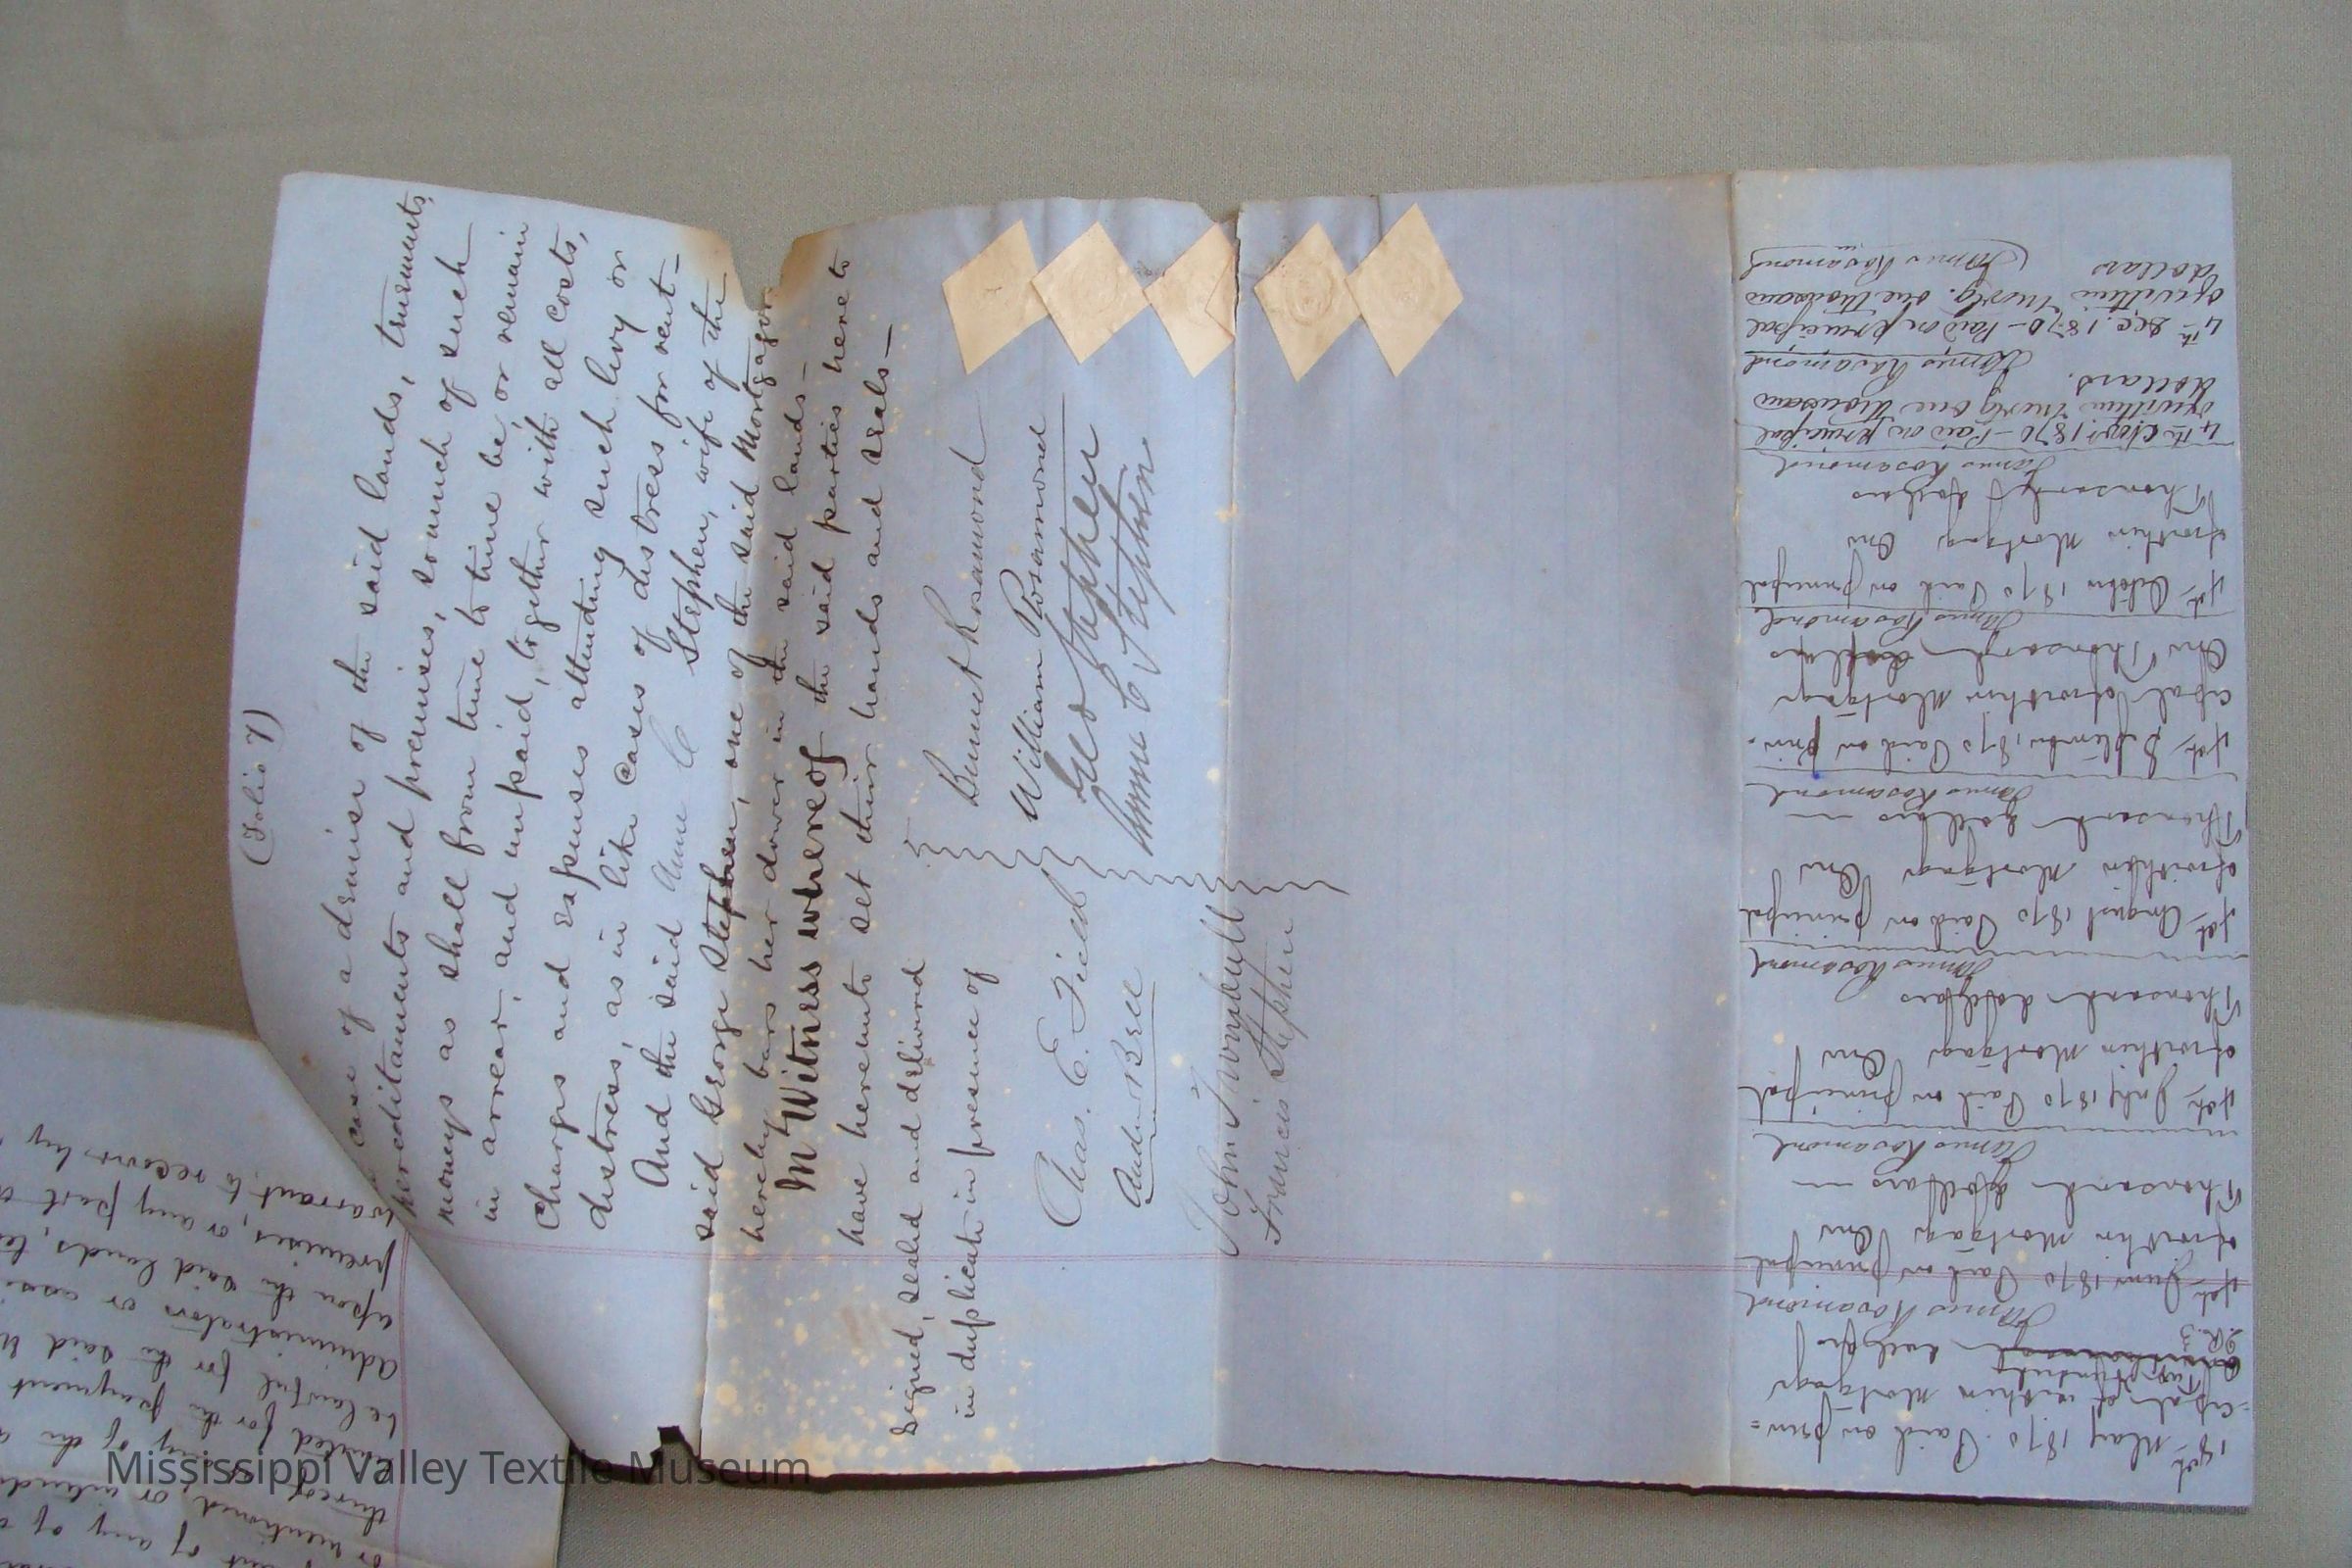 (Folio 7)
case of a demise of the said lands, tenements,
hereditaments and premises, so much of such
moneys as shall from time to time be, or remain
in arrear, and unpaid, together with all costs,
Charges and expenses attending such levy or
distress, as in like cases of distress for rent—
And the said Anne C Stephen, wife of the
said George Stephen, one of the said Mortgagors
hereby bars her dower in the said lands—
In Witness whereof the said parties hereto
have hereunto set their hands and seals—
Signed, sealed and delivered
in duplicate in presence of
Bennet Rosamond
William Rosamond
Geo Stephen
Anne C Stephen
Chas. E. Field
Andw Bell
John Turnbull
Francis Stephen
18th May 1870. Paid on prin=
=cipal of within Mortgage
Two Hundred dollars
J.R.
James Rosamond
4th June 1870 Paid on principal
of within Mortgage One
Thousand dollars
James Rosamond
4th July 1870 Paid on principal
of within Mortgage One
Thousand dollars
James Rosamond
4th August 1870 Paid on principal
of within Mortgage One
Thousand dollars
James Rosamond
4th September, 1870 Paid on prin-
cipal of within Mortgage
One Thousand dollars
James Rosamond
4th October 1870 Paid on principal
of within Mortgage One
Thousand dollars
James Rosamond
4th Novr. 1870 - Paid on principal
of within Mortg one thousand
dollars.
James Rosamond
4th Dec. 1870 - Paid on principal
of within Mortg. One thousand
dollars
James Rosamond
warrant to recover by
premises, or any part
upon the said lands,
administrators or
be lawful for the said
for the payment
thereof any of the
or mentioned, or
of any of
Mississippi Valley Textile Museum